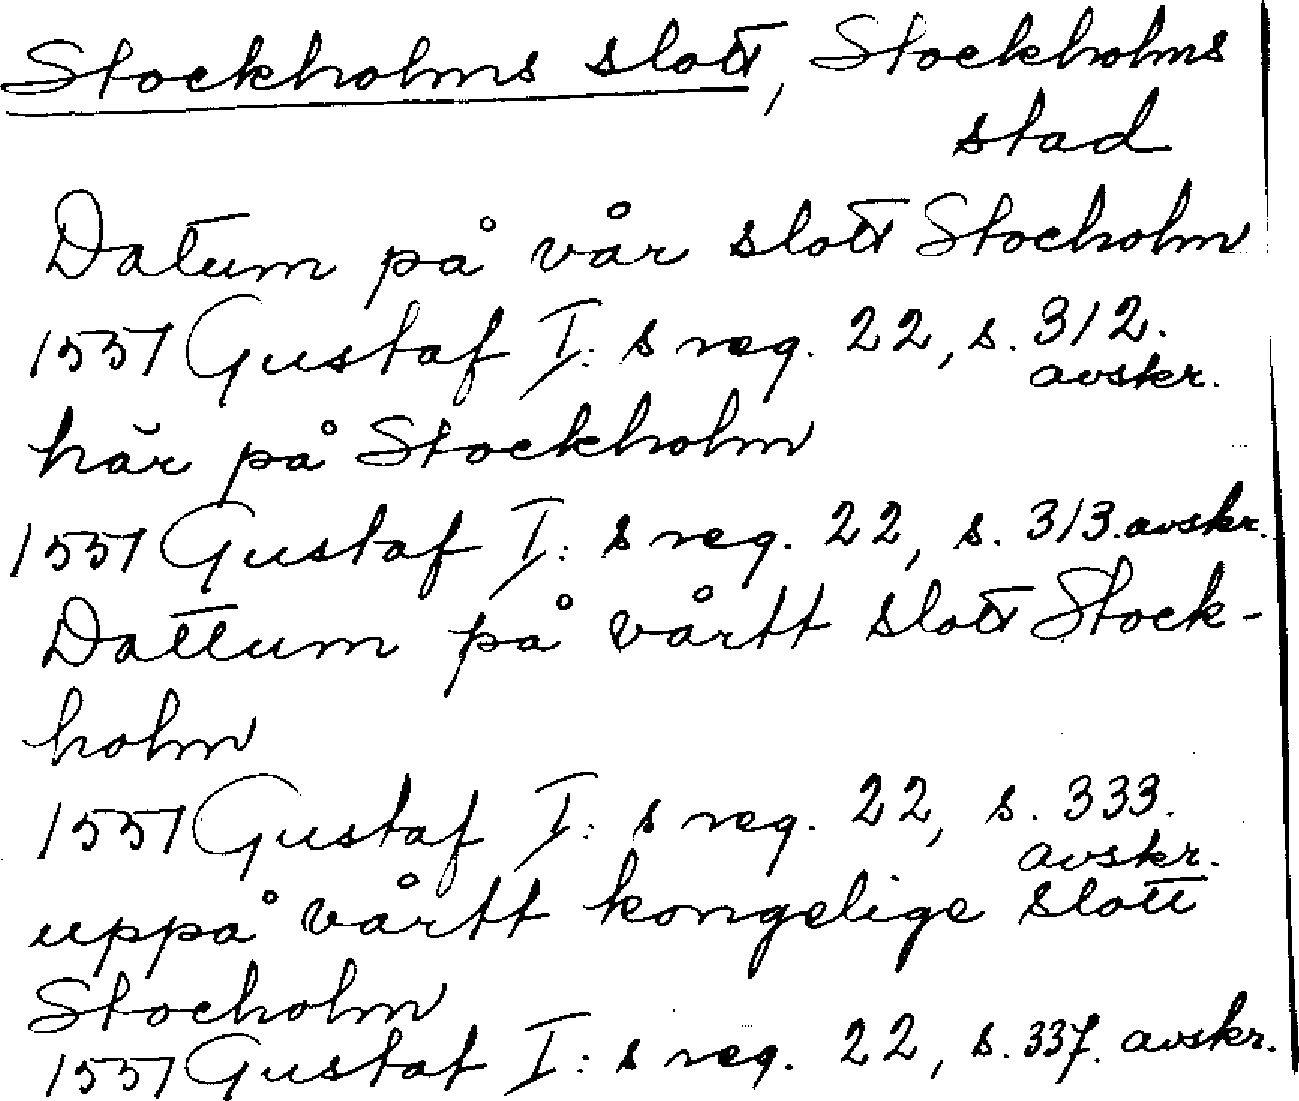 Stockholms slott, Stockholms
stad
Datum på vår slott Stocholm
1551 Gustaf I:s reg. 22, s. 312.
avskr.
här på Stockholm
1551 Gustaf I:s reg. 22, s. 313. avskr.
Dattum på vårtt slott Stock-
holm
1551 Gustaf I:s reg. 22, s. 333.
avskr.
uppå vårtt kongelige slott
Stocholm
1551 Gustaf I:s reg. 22, s. 337. avskr.